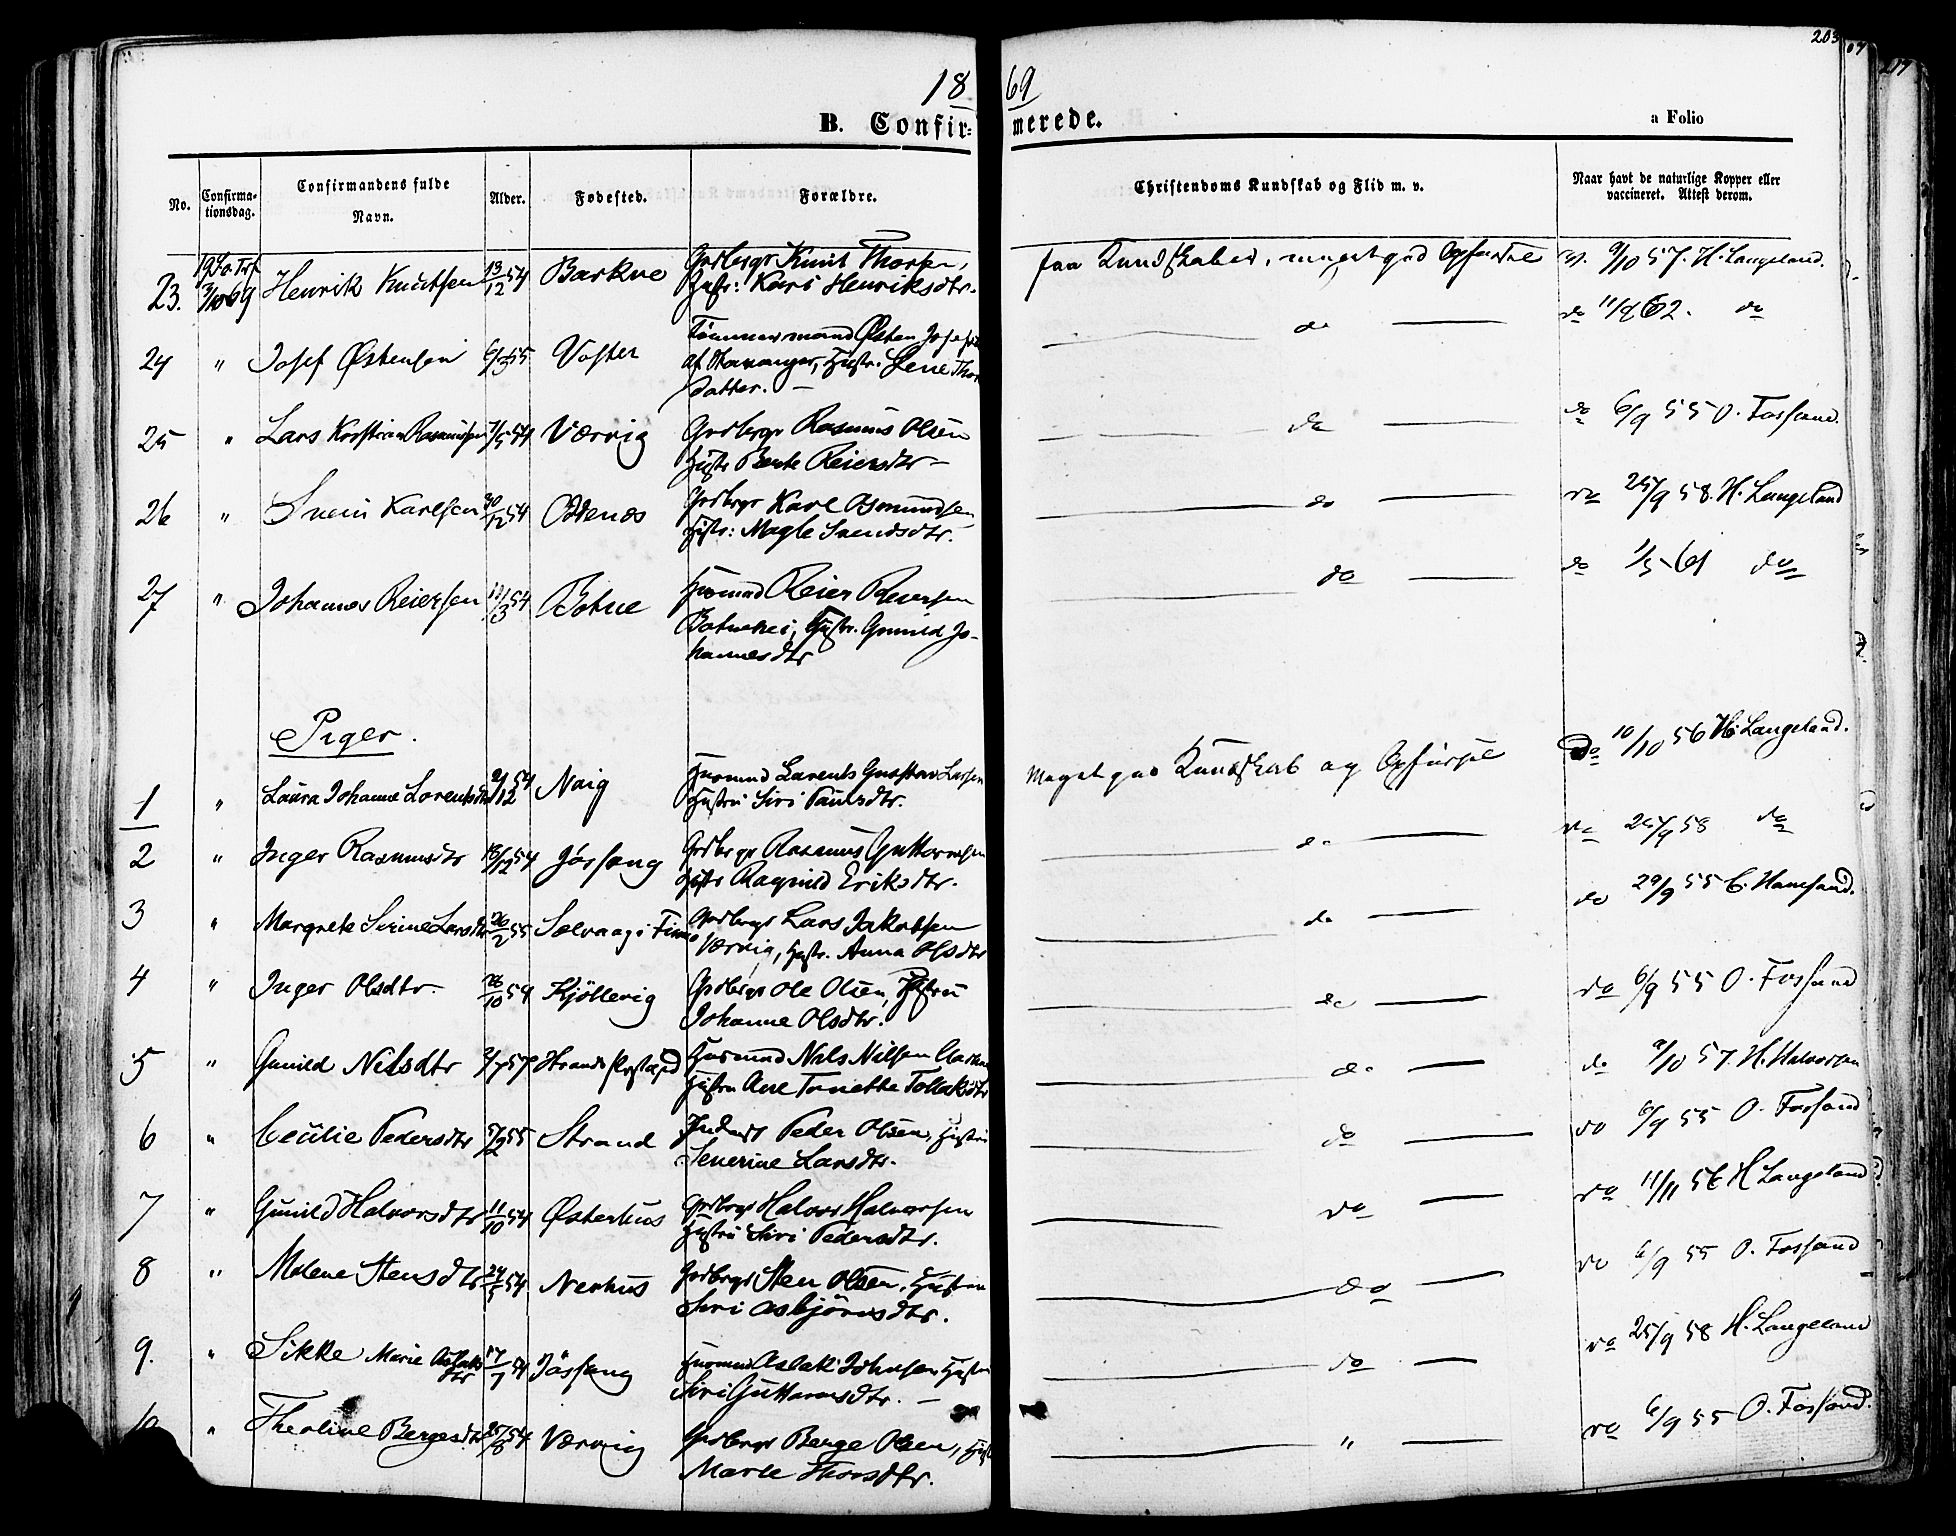 203
1869
B. Confirmerede.
a Folio
No.
Confirmationsdag.
Confirmandens fulde Navn.
Alder.
Fødested.
Forældre.
Christendoms Kundskab og Flid m. v.
Naar havt de naturlige Kopper eller vaccineret. Attest derom.
23. 3/10 69 Henrik Knutsen 13/12 54 Barkve Knut Thorsen, Hustr: Kari Henriksdtr. 9/10 57. H. Langeland.
24 " Josef Østensen 6/3 55 Voster Tømmermand Østen af Stavanger, Hustr. Lene datter. — do — do 62. do
25 " Lars Rasmussen 54 Værvig Grdbrgr Rasmus Olsen Hustr Berte Reiersdtr — do — do 6/9 55 O. Fossand.
26 " Svein Karlsen 30/12 54 Odenæs Grdbrgr Karl Osmundsen, Hustr: Magle Svendsdtr. — do — do 25/9 58. H. Langeland
27 " Johannes Reiersen 54 Botne Husmand Reier Reiersen Hustr. Gunild Johannesdtr — do — do 1/5 61 do
Piger.
1 " Laura Johanne Lorentsdtr 2/12 54 Naig Husmand Lorents Gustav Larsen Hustru Siri Paulsdtr. Meget god Kundskab og Opførsel Do 10/10 56 H. Langeland.
2 " Inger Rasmusdtr 18/12 54 Jøssang Grdbrgr Rasmus Guttormsen Hustr Ragnild Eriksdtr. — do — do 25/9 58 do
3 " Margrete Serine Larsdtr 26/2 55 Solvaag i Lars Jakobsen Værvig, Hustr. Anna Olsdtr — do — do 29/9 55
4 " Inger Olsdtr. 26/10 54 Kjöllevig Grdbrgr Ole Olsen, Hustru Johanne Olsdtr. — do — do 6/9 55 O. Fossand
5 " Gunild Nilsdtr Husmand Nils Nilsen Hustru Ane Tonette Tollaksdtr — do — do 57. H. Halvorsen
6 " Cecilie Pedersdtr 55 Strand Peder Olsen, Hustru Severine Larsdtr. — do — do 6/9 55 O. Fossand
7 " Gunild Halvorsdtr 11/10 54 Østerhus Grdbrgr Halvor Halvorsen Hustru Siri Pedersdtr. — do — do 11/11 56 H Langeland
8 " Malene Stensdtr 54 Nerhus Grdbrgr Sten Olsen, Hustru Siri Asbjörnsdtr. — do — do 6/9 55 O. Fossand
9. " Sikke Marie Aslaksdtr 54 Jössang Husmand Aslak Johnsen Hustru Siri Guttormsdtr. — — do — do 25/9 58 H. Langeland
10 " Theoline Bergesdtr 25/8 54 Værvig Grdbrgr Berge Olsen, Marte Thorsdtr. — " — do 6/9 55 O. Fossand.